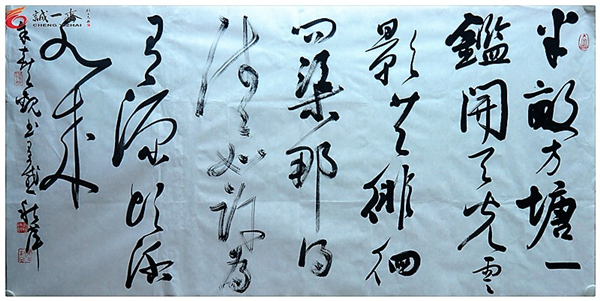 半畝方塘一
鑑開天光雲
影共徘徊
問渠那得
清如許為
有源頭活
水来
誠一齋
CHENG YI ZHAI